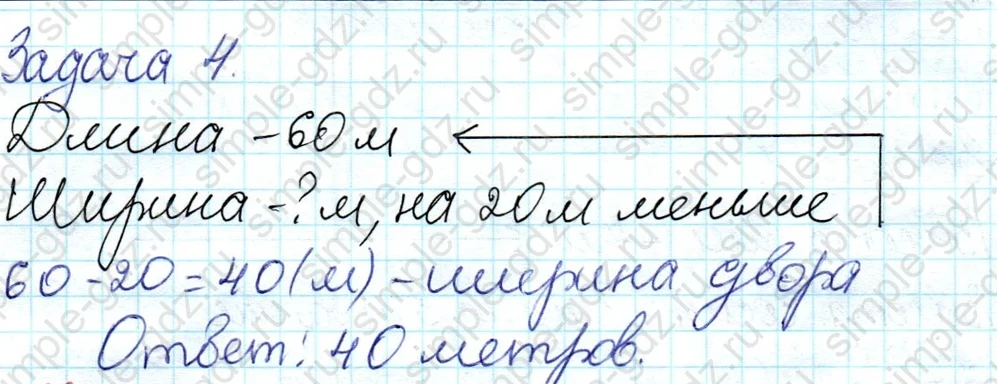 Задача 4.
Длина - 60 м
Ширина - ? м, на 20 м меньше
60 - 20 = 40 (м) - ширина двора
Ответ: 40 метров.